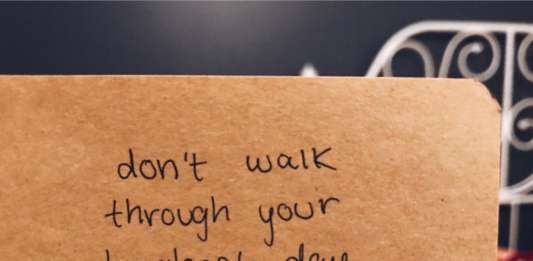 don't walk
through your